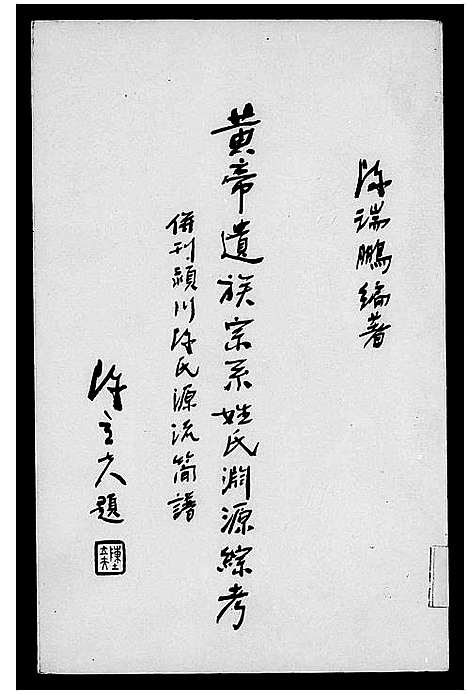 陈瑞鵬編著
黃帝遺族宗系姓氏淵源綜考
併刊潁川陈氏源流簡譜
陈立夫題